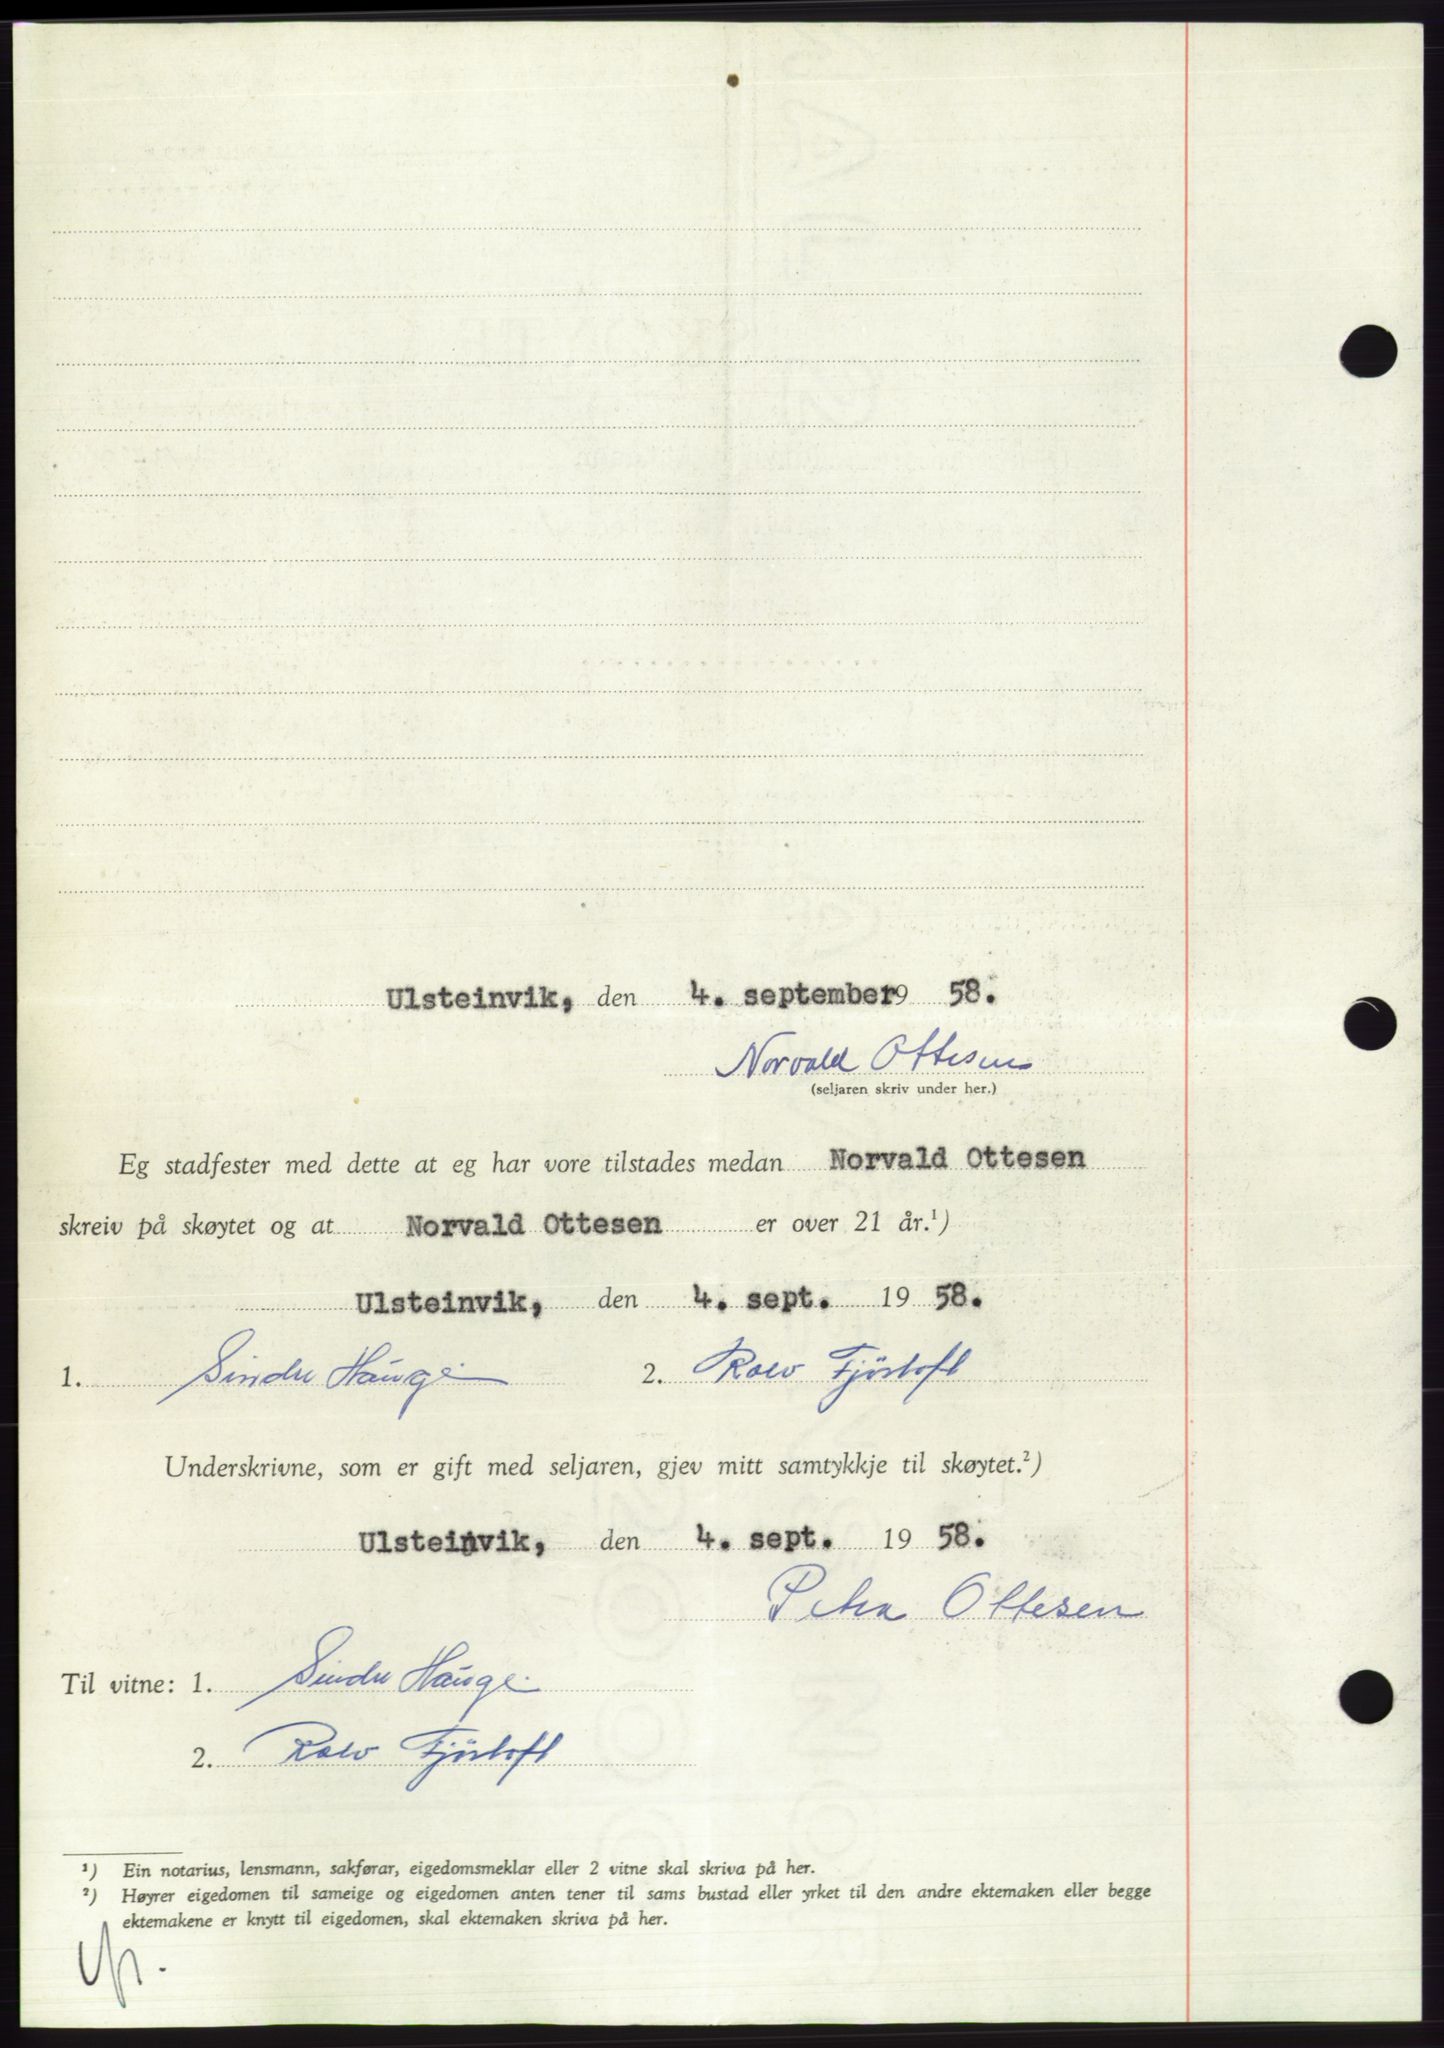 Ulsteinvik, den 4. september9 58.
Norvald Ottesen
(seljaren skriv under her.)
Eg stadfester med dette at eg har vore tilstades medan Norvald Ottesen
skreiv på skøytet og at Norvald Ottesen er over 21 år.¹)
Ulsteinvik, den 4. sept. 19 58.
1. Sindre Hauge 2. Rolv Fjörtoft
Underskrivne, som er gift med seljaren, gjev mitt samtykkje til skøytet.²)
Ulsteinvik, den 4. sept. 19 58.
Petra Ottesen
Til vitne: 1. Sindre Hauge
2. Rolv Fjörtoft
¹) Ein notarius, lensmann, sakførar, eigedomsmeklar eller 2 vitne skal skriva på her.
²) Høyrer eigedomen til sameige og eigedomen anten tener til sams bustad eller yrket til den andre ektemaken eller begge
ektemakene er knytt til eigedomen, skal ektemaken skriva på her.